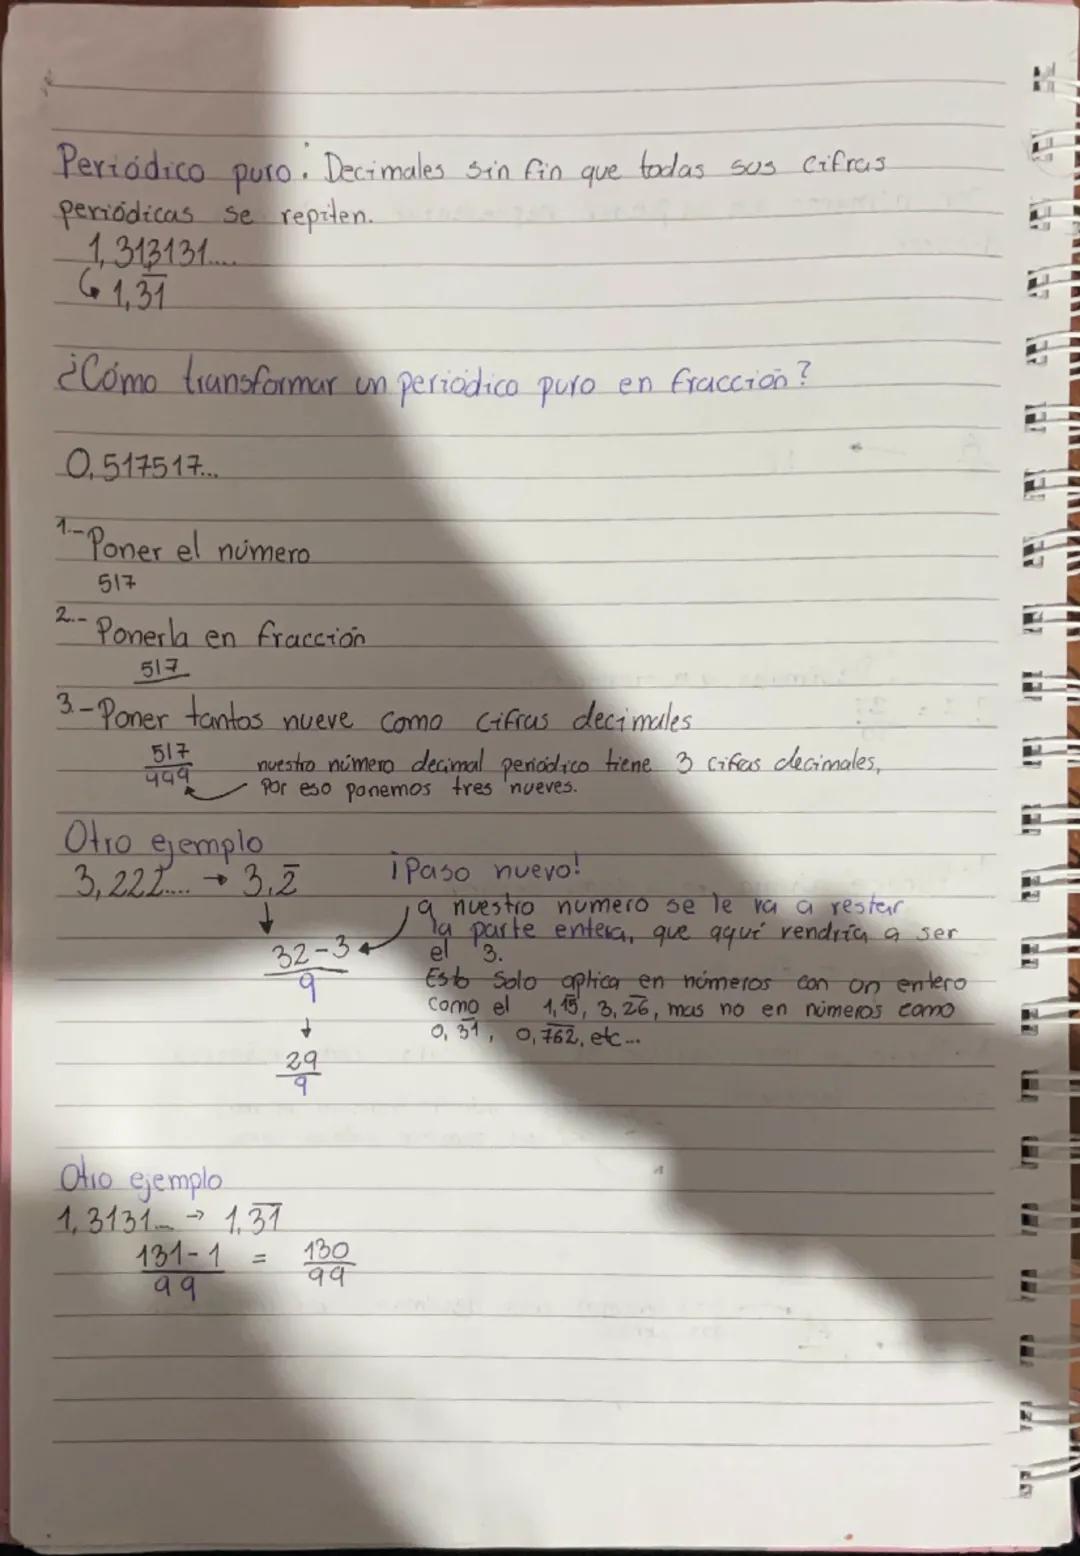 Periódico puro: Decimales sin fin que todas sus cifras
periódicas se repiten.
1,313131....
↳ 1,3̅1̅
¿Cómo transformar un periódico puro en fracción?
0,517517...
1.- Poner el número
517
2.- Ponerla en fracción
517
3.- Poner tantos nueve como cifras decimales
517
999
nuestro número decimal periódico tiene 3 cifras decimales,
Por eso ponemos tres nueves.
Otro ejemplo
3,222.... → 3,2̅
¡Paso nuevo!
a nuestro numero se le va a restar
la parte entera, que aquí vendría a ser
el 3.
Esto solo aplica en números con un entero
como el 1,1̅5̅, 3,2̅6̅, mas no en números como
0,3̅1̅, 0,7̅6̅2̅, etc...
32-3
9
29
9
Otro ejemplo
1,3131... → 1,3̅1̅
131-1 = 130
99 99